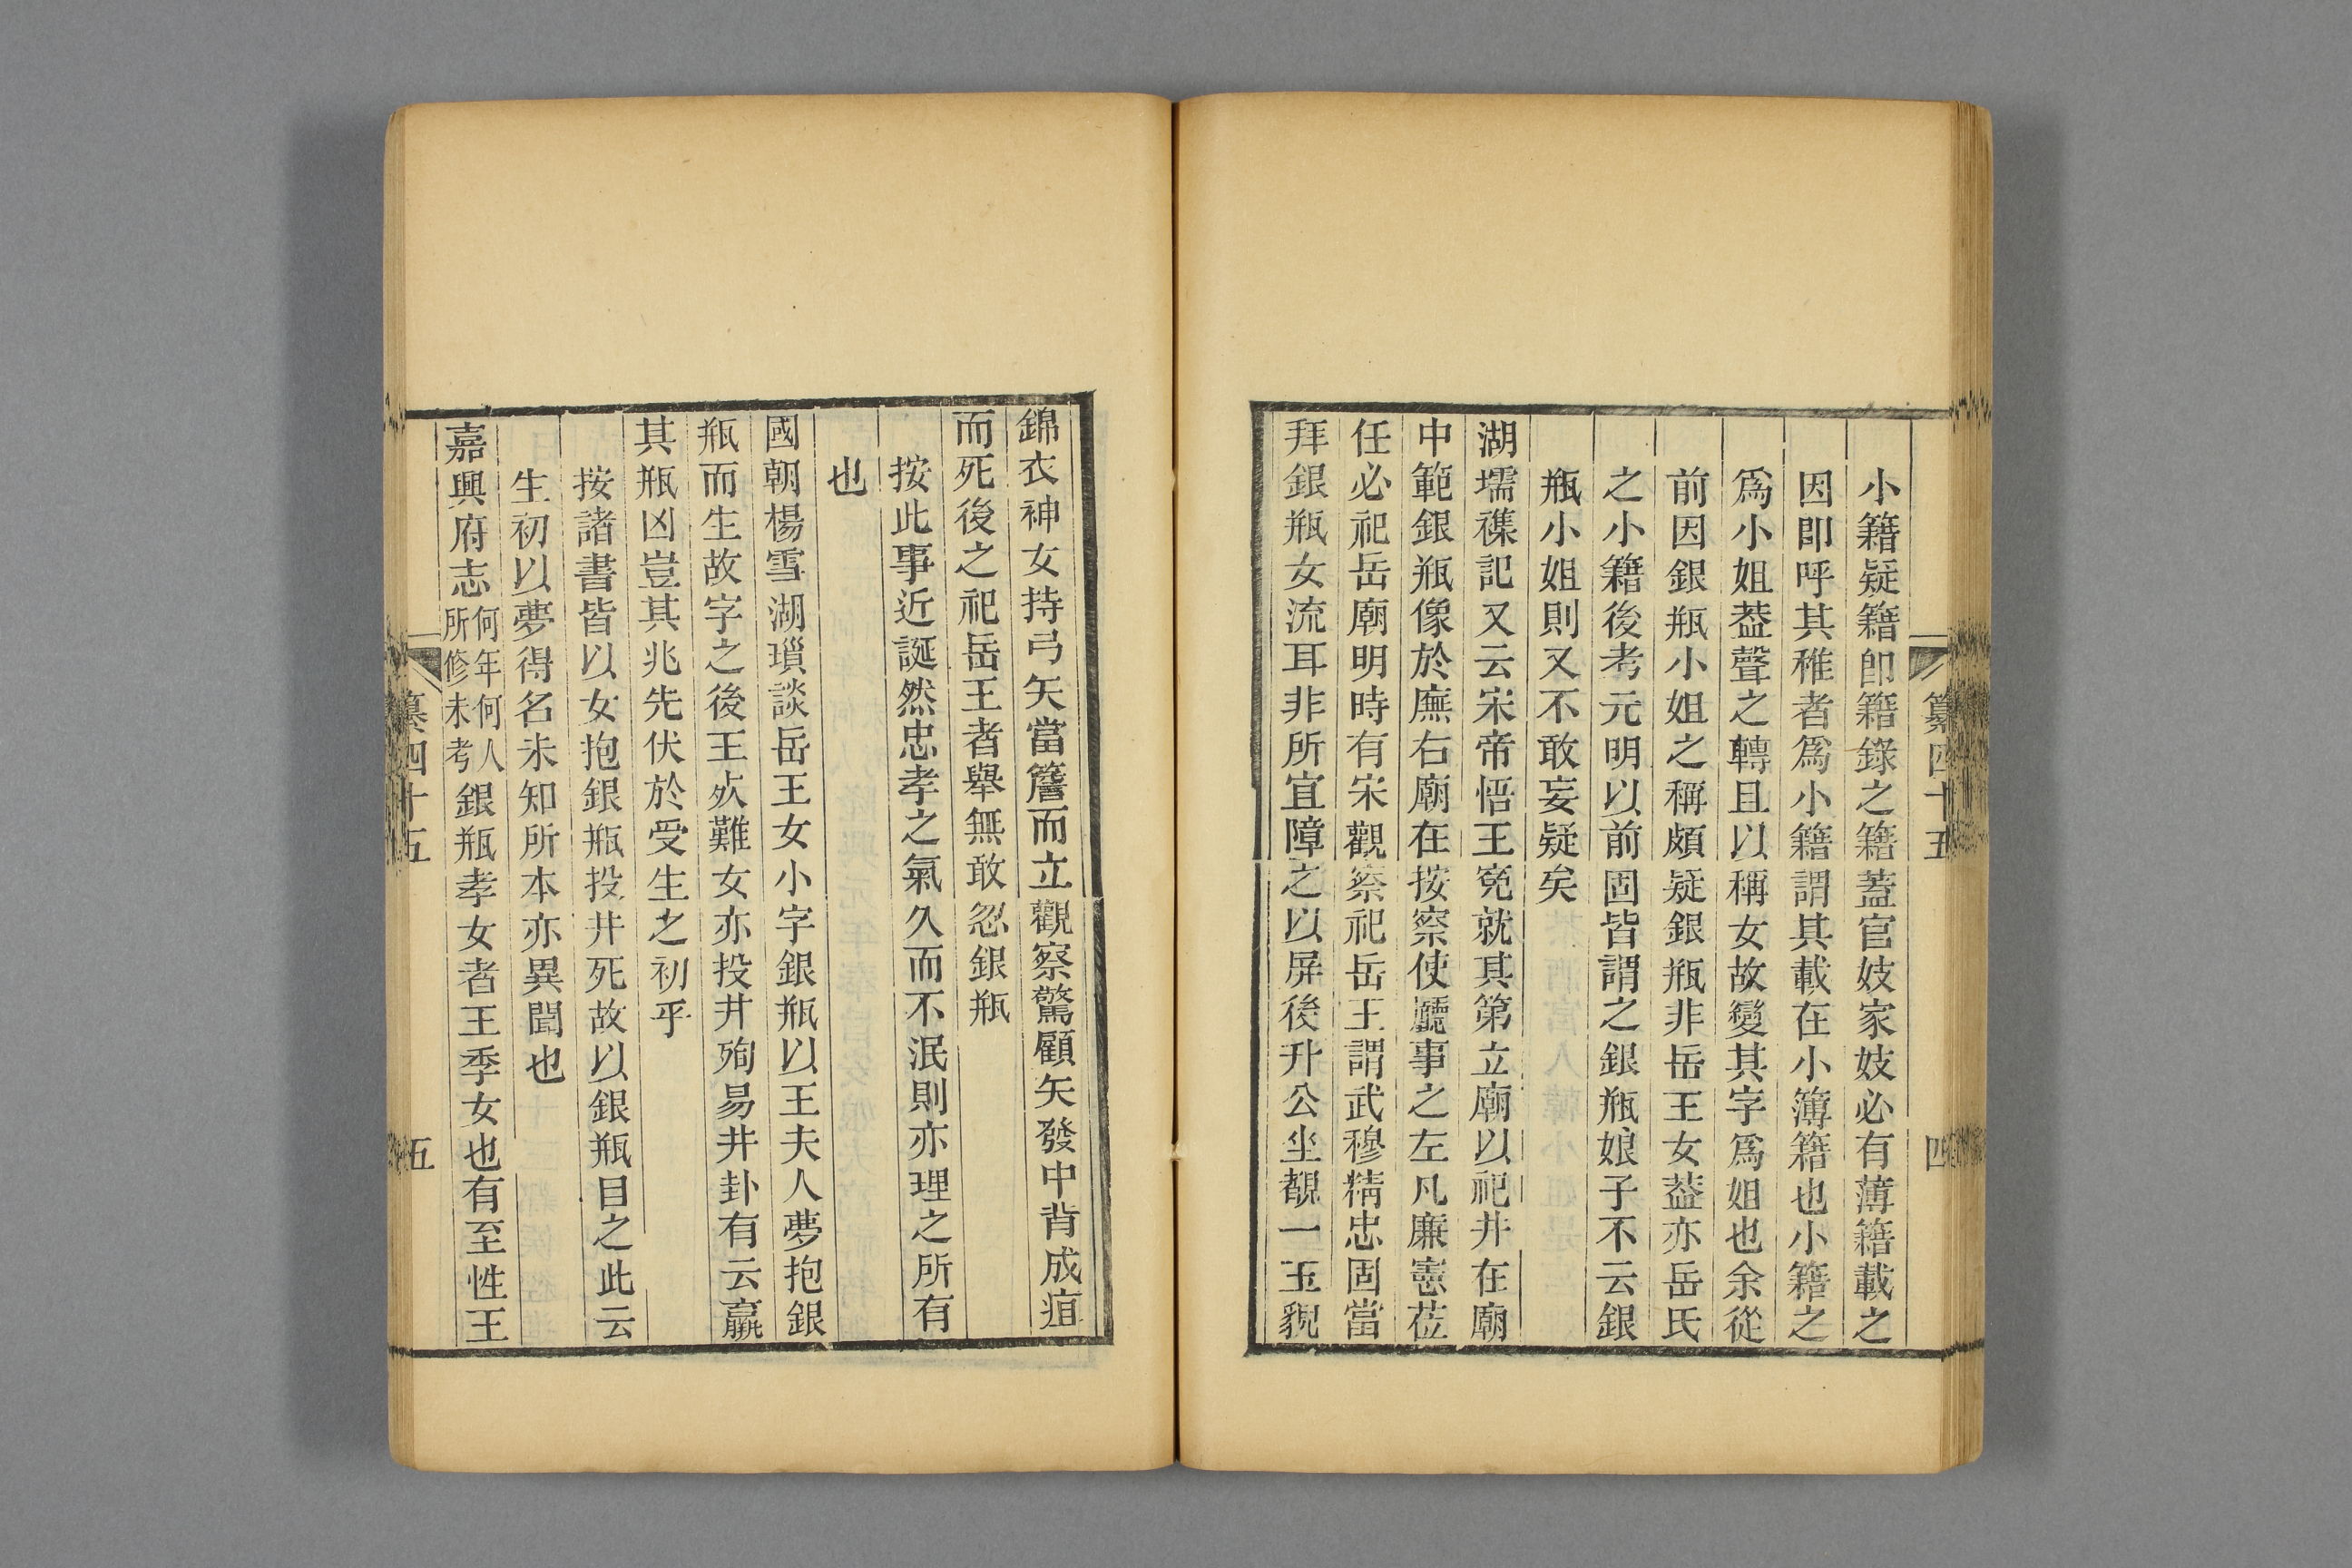 小籍疑籍卽籍錄之籍蓋官妓家妓必有薄籍載之
因卽呼其稚者爲小籍謂其載在小簿籍也小籍之
爲小姐葢聲之轉且以稱女故變其字爲姐也余從
前因銀瓶小姐之稱頗疑銀瓶非岳王女葢亦岳氏
之小籍後考元明以前固皆謂之銀瓶娘子不云銀
瓶小姐則又不敢妄疑矣
湖壖襍記又云宋帝悟王寃就其第立廟以祀井在廟
中範銀瓶像於廡右廟在按察使廳事之左凡廉憲莅
任必祀岳廟明時有宋觀察祀岳王謂武穆精忠固當
拜銀瓶女流耳非所宜障之以屏後升公坐覩一玉貌
纂四十五
四
錦衣神女持弓矢當簷而立觀察驚顧矢發中背成疽
而死後之祀岳王者舉無敢忽銀瓶
按此事近誕然忠孝之氣久而不泯則亦理之所有
也
國朝楊雪湖瑣談岳王女小字銀瓶以王夫人夢抱銀
瓶而生故字之後王歿難女亦投井殉易井卦有云羸
其瓶凶豈其兆先伏於受生之初乎
按諸書皆以女抱銀瓶投井死故以銀瓶目之此云
生初以夢得名未知所本亦異聞也
嘉興府志何年何人所修未考銀瓶孝女者王季女也有至性王
纂四十五
五